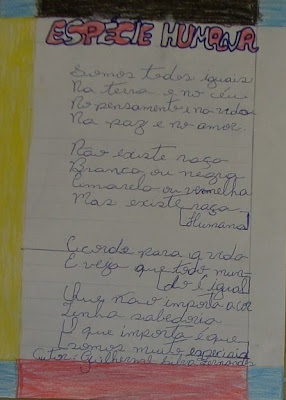 ESPÉCIE HUMANA
Somos todos iguais
Na terra e no céu
No pensamento e na vida
Na paz e no amor.
Não existe raça
Branca ou negra
Amarela ou vermelha
Mas existe raça
Humana
Acorde para a vida
E veja que todo mun-
do é igual
Que não importa a cor
Tenha sabedoria
O que importa é que
somos muito especiais
Autor: Guilherme Silva Fernandes